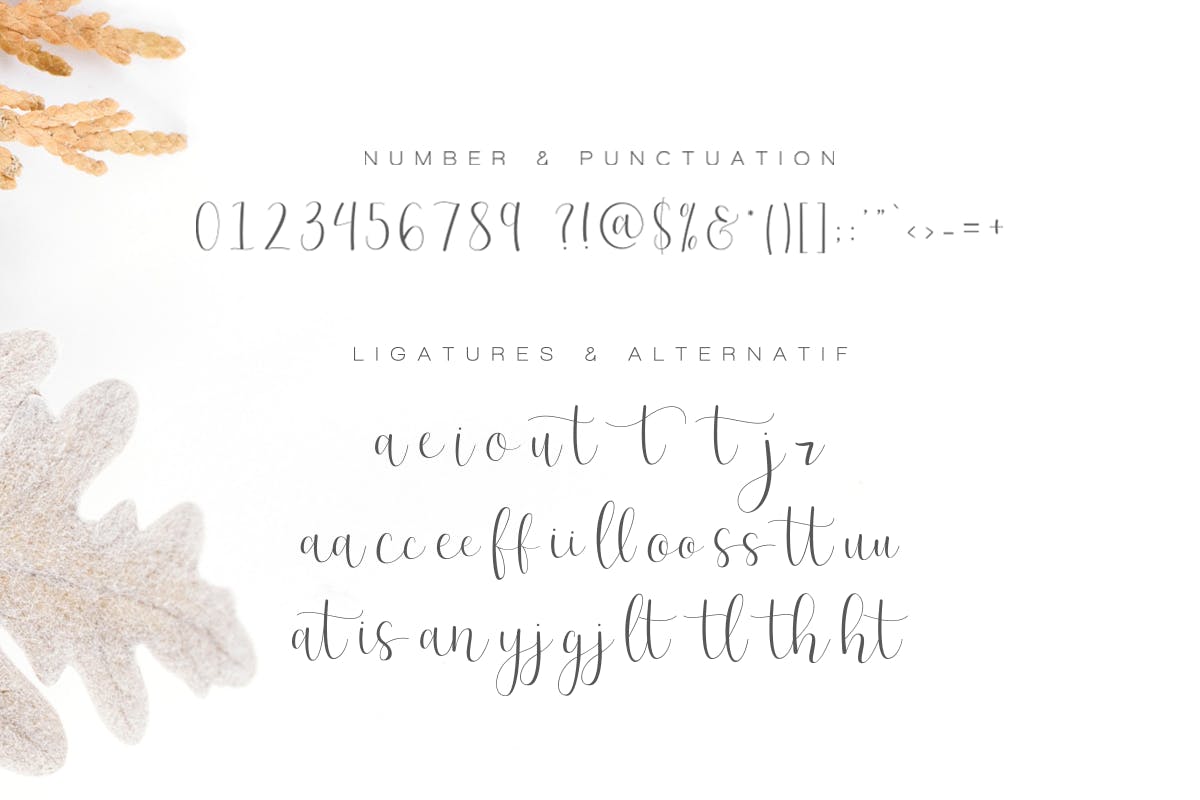 NUMBER & PUNCTUATION
0123456789 ?!@$%&*()[];:'"`<>-=+
LIGATURES & ALTERNATIF
a e i o u t t t j r
aa cc ee ff ii ll oo ss tt uu
at is an yj gj lt tl th ht